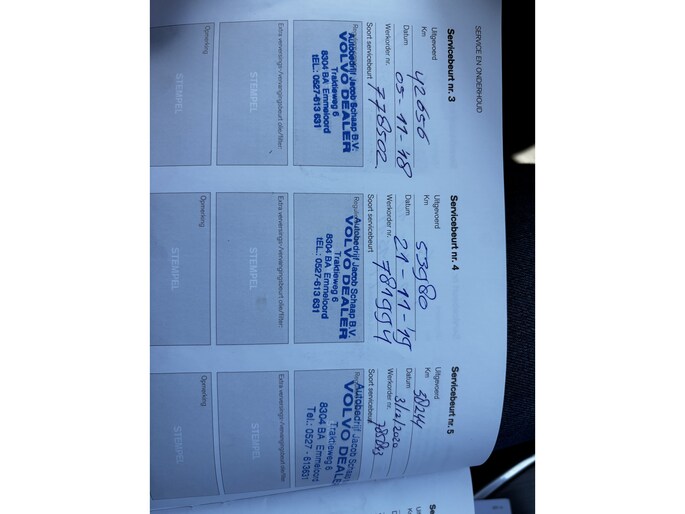 SERVICE EN ONDERHOUD
Servicebeurt nr. 3
Uitgevoerd
Km 42656
Datum 05-11-18
Werkorder nr. 778502
Soort servicebeurt
Autobedrijf Jacob Schaap B.V.
VOLVO DEALER
Traktieweg 6
8304 BA Emmeloord
tEL.: 0527-613 631
Extra verversings-/vervangingsbeurt olie/filter:
STEMPEL
Opmerking
STEMPEL
Servicebeurt nr. 4
Uitgevoerd
Km 53980
Datum 21-11-19
Werkorder nr. 781954
Soort servicebeurt
Autobedrijf Jacob Schaap B.V.
VOLVO DEALER
Traktieweg 6
8304 BA Emmeloord
tEL.: 0527-613 631
Extra verversings-/vervangingsbeurt olie/filter:
STEMPEL
Opmerking
STEMPEL
Servicebeurt nr. 5
Uitgevoerd
Km 58244
Datum 3/12/2020
Werkorder nr.
Soort servicebeurt
Autobedrijf Jacob Schaap
VOLVO DEALER
Traktieweg 6
8304 BA Emmeloord
Tel.: 0527 - 613631
Extra verversings-/vervangingsbeurt
STEMPEL
Opmerking
STEMPEL